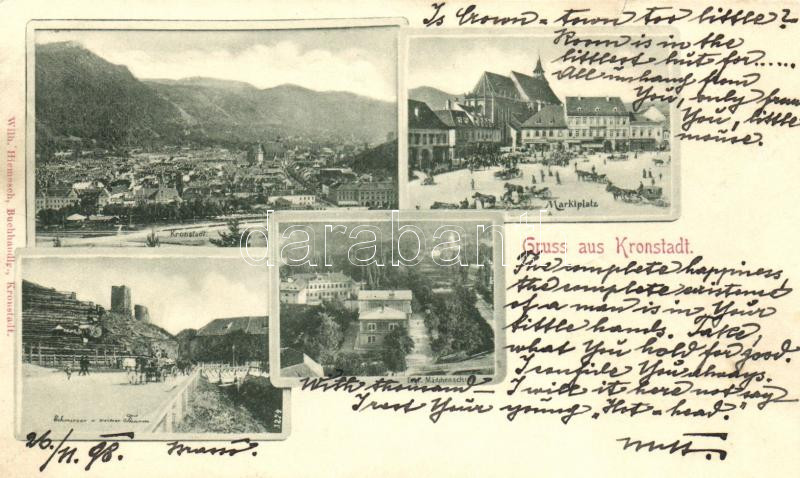 Is Crown-town too little?
Room is in the
littlest hut for.....
All unhang from
You, only from
You, little
mouse.
Kronstadt.
Marktplatz
Wilh. Hiemesch, Buchhandlg., Kronstadt.
darabanth
Gruss aus Kronstadt.
The complete happiness
the complete existence
of a man is in Your
little hands. Take,
what You hold for good.
I confide You always.
I will it here not say
With thousand
I rest Your young "Hot-head."
Ev. Mädchenschule
Schwarzer u. weisser Thurm
1274
26./11. 98. Brassó.